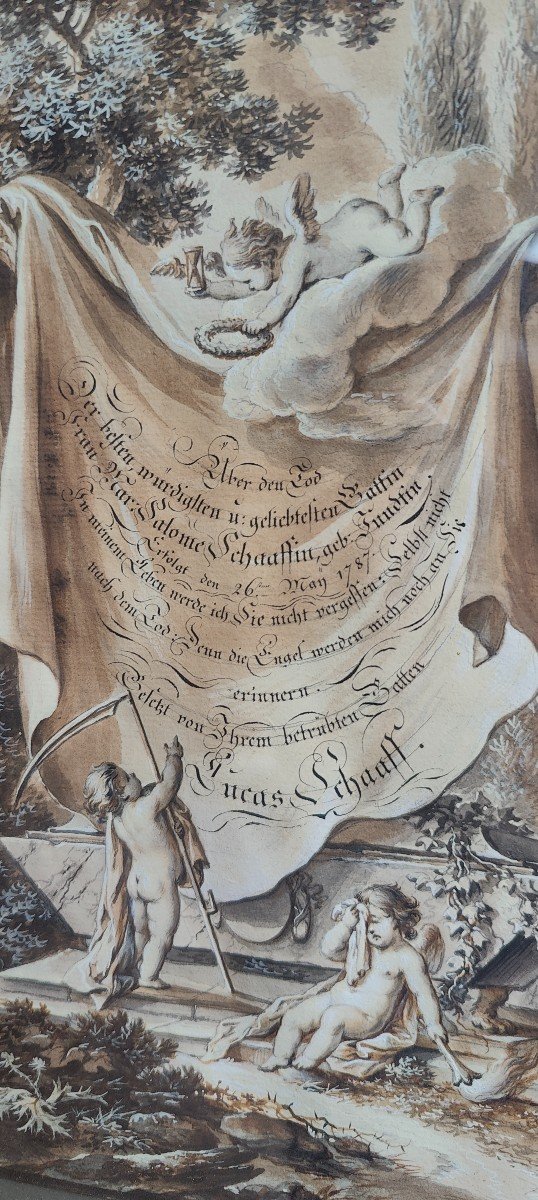 Über den Tod
Der besten, würdigsten u: geliebtesten Gattin
Frau Mar: Salome Schaaffin, geb: Fundtin.
Erfolgt den 26.ten Maÿ 1787.
In meinem Leben werde ich Sie nicht vergessen: Selbst nicht
nach dem Tod: Denn die Engel werden mich noch an Sie
erinnern.
Gesetzt von Ihrem betrübten Gatten
Lucas Schaaff.